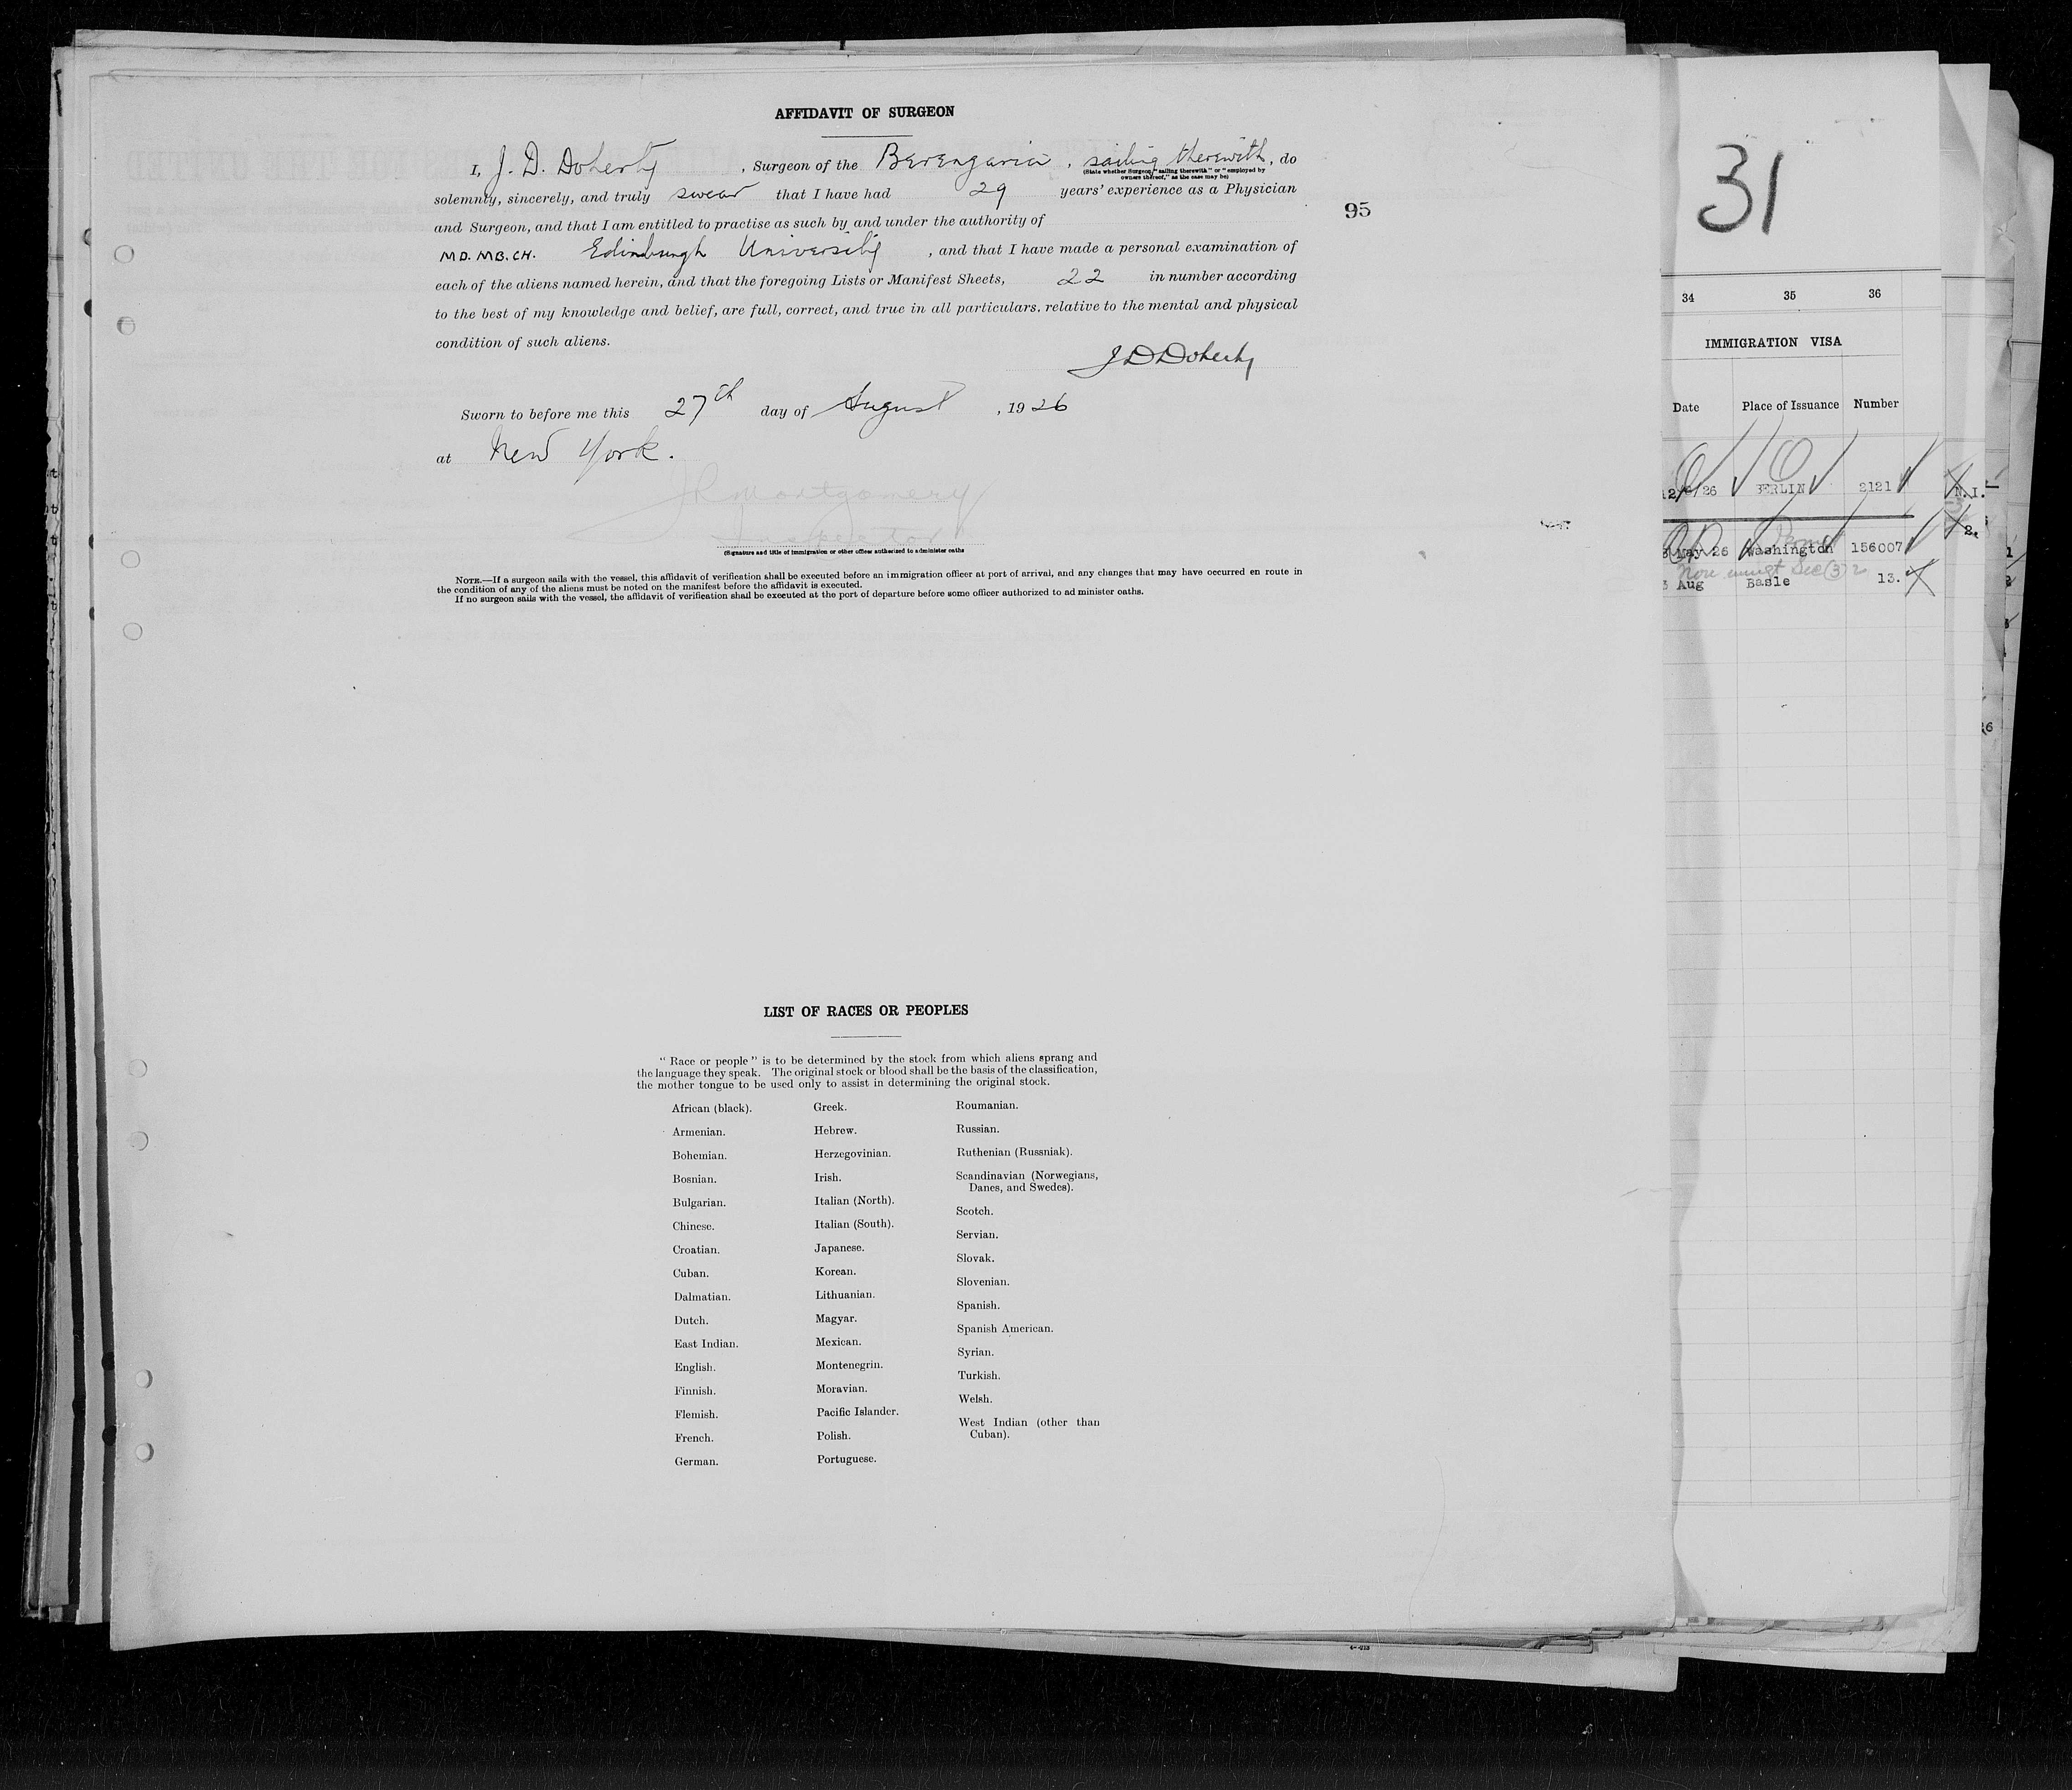 AFFIDAVIT OF SURGEON
I, J. D. Doherty, Surgeon of the Berengaria, sailing therewith, do
(State whether Surgeon "sailing therewith" or "employed by
owners thereof," as the case may be)
solemnly, sincerely, and truly swear that I have had 29 years' experience as a Physician
and Surgeon, and that I am entitled to practise as such by and under the authority of
MD. MB. CH. Edinburgh University, and that I have made a personal examination of
each of the aliens named herein, and that the foregoing Lists or Manifest Sheets, 22 in number according
to the best of my knowledge and belief, are full, correct, and true in all particulars, relative to the mental and physical
condition of such aliens.
J D Doherty
Sworn to before me this 27th day of August, 1926
at New York.
J R Montgomery
Inspector
(Signature and title of immigration or other officer authorized to administer oaths
NOTE.—If a surgeon sails with the vessel, this affidavit of verification shall be executed before an immigration officer at port of arrival, and any changes that may have occurred en route in
the condition of any of the aliens must be noted on the manifest before the affidavit is executed.
If no surgeon sails with the vessel, the affidavit of verification shall be executed at the port of departure before some officer authorized to ad minister oaths.
95
LIST OF RACES OR PEOPLES
"Race or people" is to be determined by the stock from which aliens sprang and
the language they speak. The original stock or blood shall be the basis of the classification,
the mother tongue to be used only to assist in determining the original stock.
African (black).
Armenian.
Bohemian.
Bosnian.
Bulgarian.
Chinese.
Croatian.
Cuban.
Dalmatian.
Dutch.
East Indian.
English.
Finnish.
Flemish.
French.
German.
Greek.
Hebrew.
Herzegovinian.
Irish.
Italian (North).
Italian (South).
Japanese.
Korean.
Lithuanian.
Magyar.
Mexican.
Montenegrin.
Moravian.
Pacific Islander.
Polish.
Portuguese.
Roumanian.
Russian.
Ruthenian (Russniak).
Scandinavian (Norwegians,
Danes, and Swedes).
Scotch.
Servian.
Slovak.
Slovenian.
Spanish.
Spanish American.
Syrian.
Turkish.
Welsh.
West Indian (other than
Cuban).
31
34 35 36
IMMIGRATION VISA
Date Place of Issuance Number
26 BERLIN 2121
N.I.
May 26 Washington 156007
2.
Sec (3) 2
Aug Basle 13.